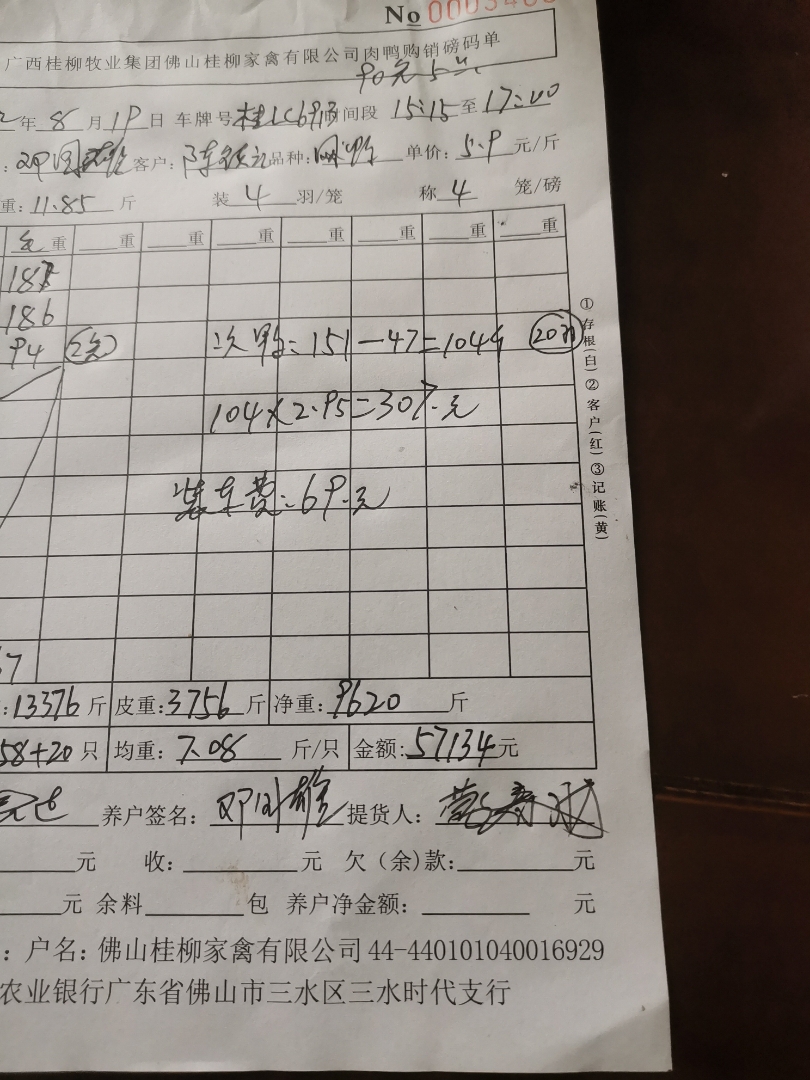 No 00034
广西桂柳牧业集团佛山桂柳家禽有限公司肉鸭购销磅码单
年8月19日 车牌号 时间段 15:15至17:00
客户: 品种: 单价:5.9元/斤
重:11.85斤 装4羽/笼 称4笼/磅
重 重 重 重 重 重 重 重
187
186
94 次鸭:151-47=104斤 20羽
104×2.95=307.元
装车费:69.元
①存根(白)②客户(红)③记账(黄)
7
:13376斤 皮重:3756斤 净重:9620斤
58+20只 均重:7.08斤/只 金额:57134元
养户签名:邓国雄 提货人:
元 收: 元 欠(余)款: 元
元 余料 包 养户净金额: 元
:户名:佛山桂柳家禽有限公司 44-440101040016929
农业银行广东省佛山市三水区三水时代支行